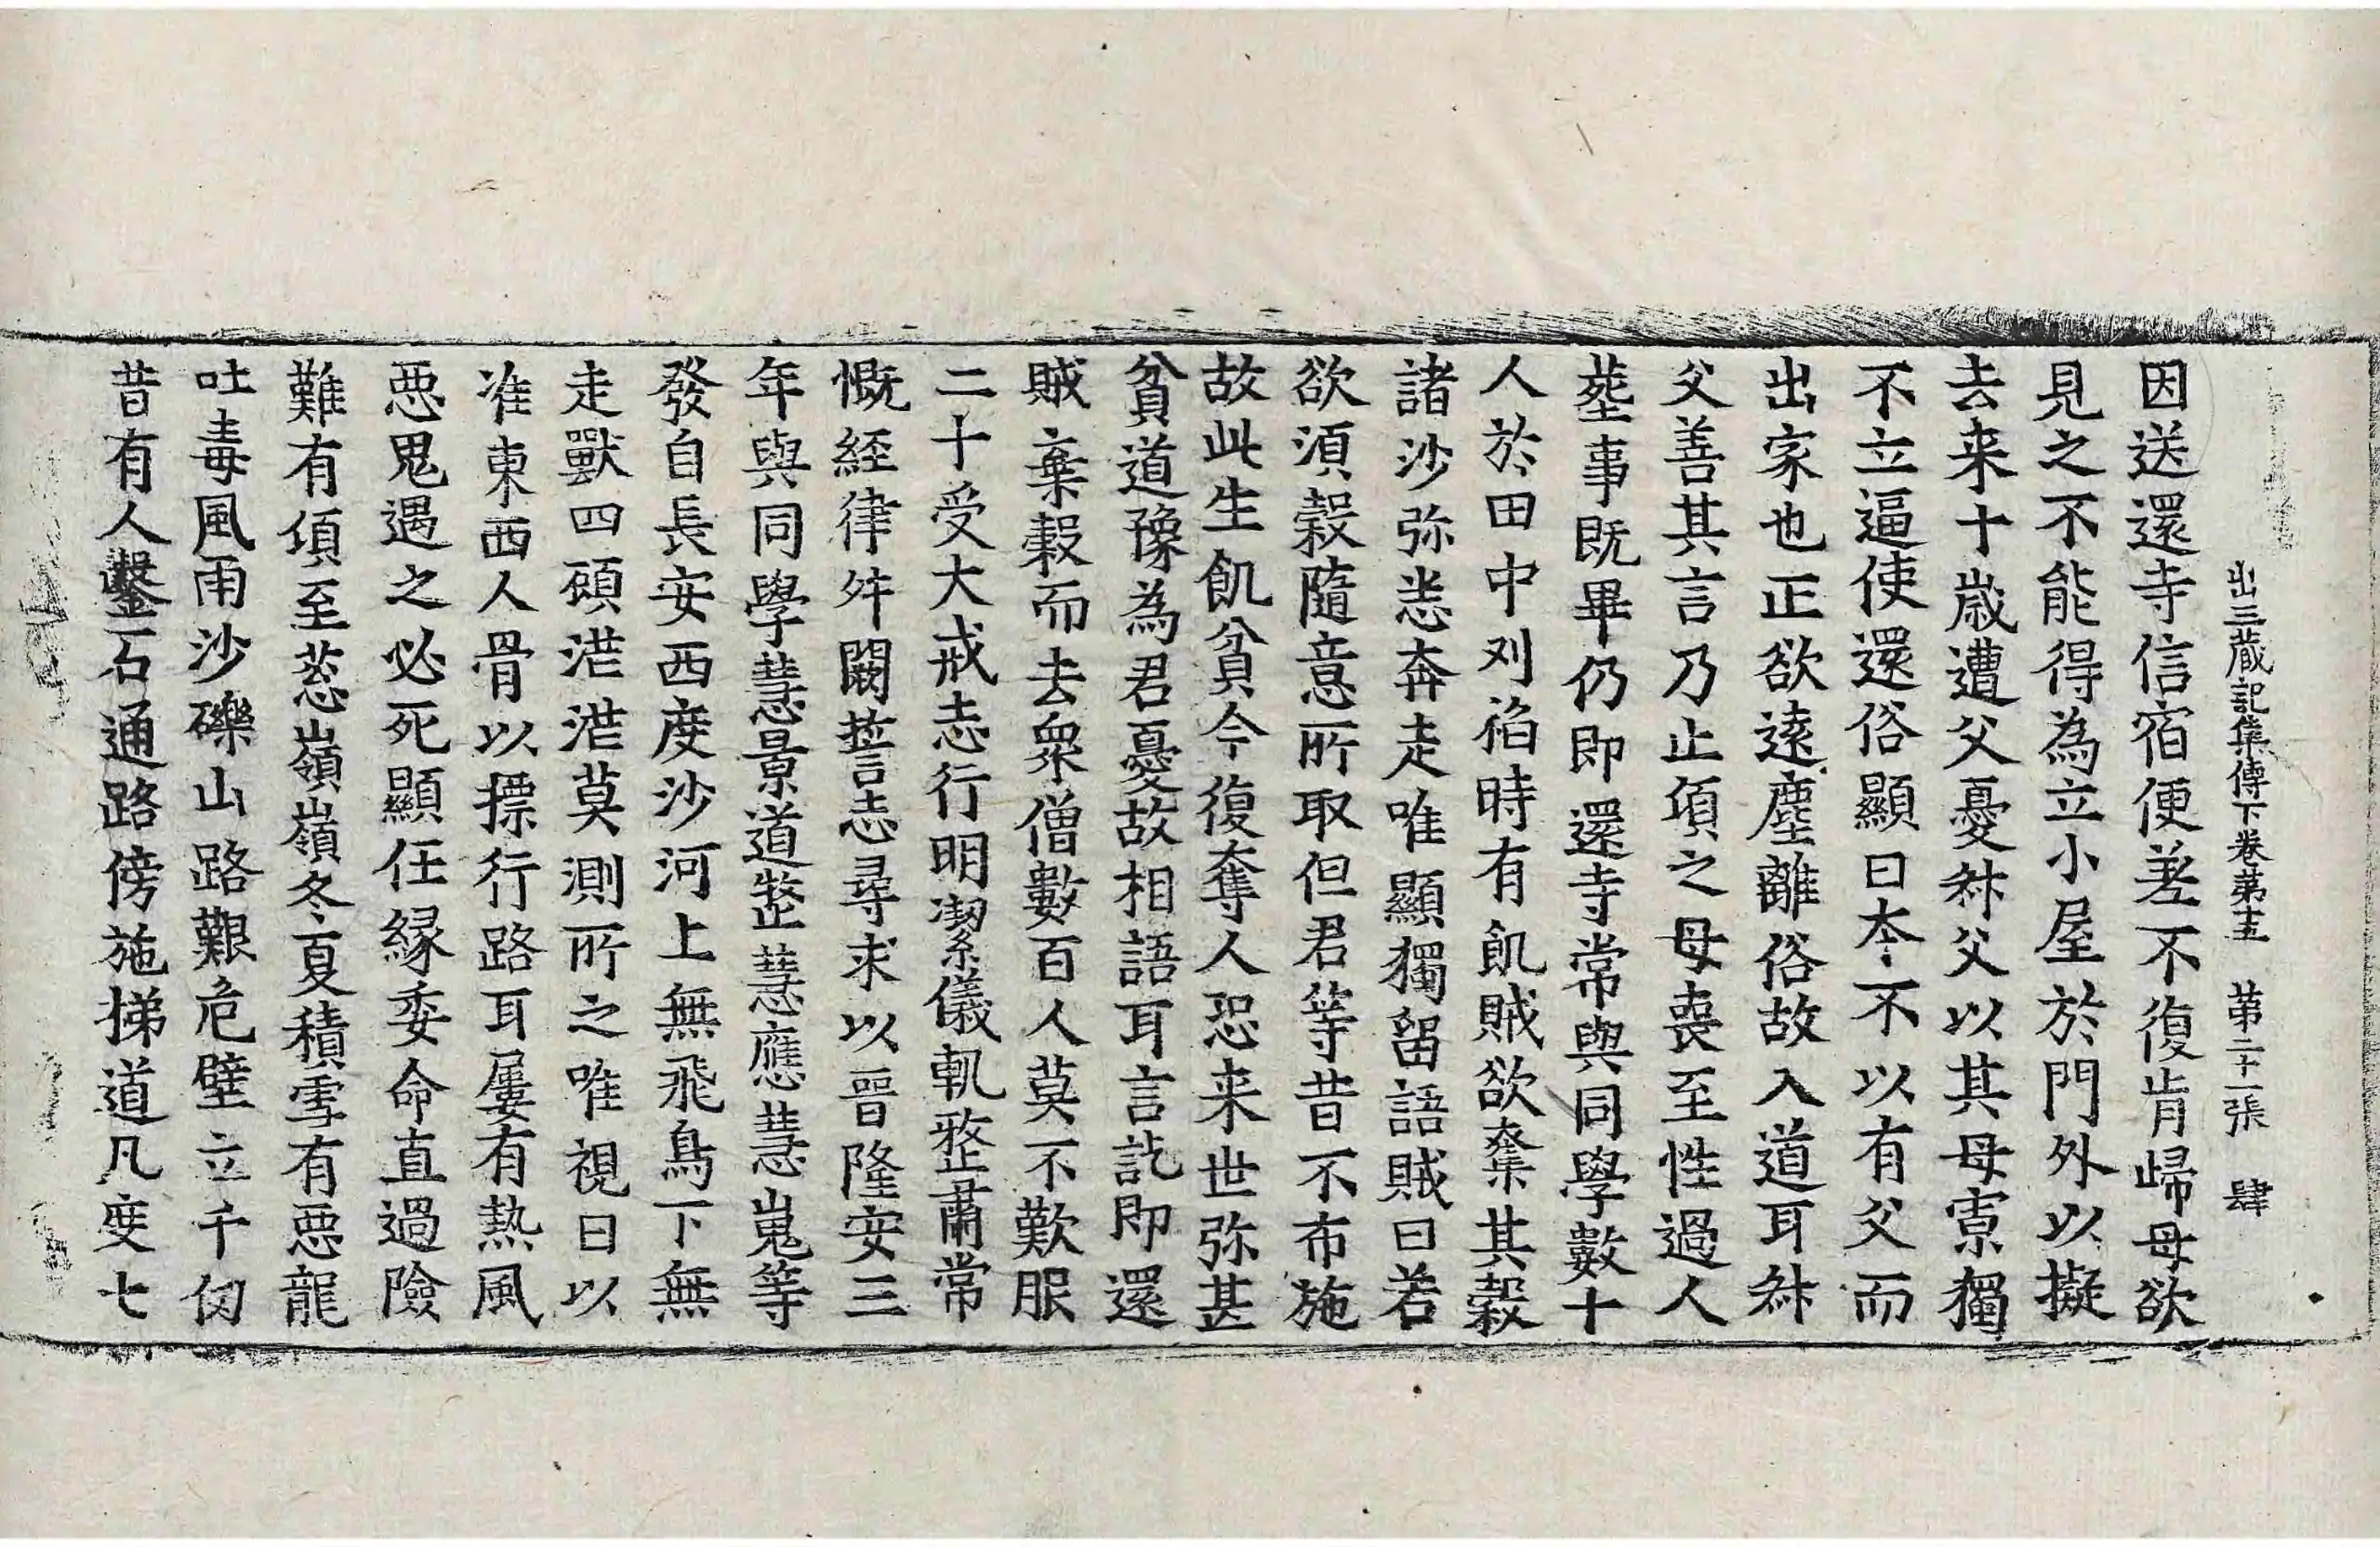 出三藏記集傳下卷苐十五　苐二十一張　肆
因送還寺信宿便差不復肯歸母欲
見之不能得為立小屋於門外以擬
去来十歳遭父憂叔父以其母寡獨
不立逼使還俗顯曰本不以有父而
出家也正欲遠塵離俗故入道耳叔
父善其言乃止頃之母喪至性過人
葬事既畢仍即還寺常與同學數十
人於田中刈稻時有飢賊欲奪其穀
諸沙弥恙奔走唯顯獨留語賊曰若
欲湏穀隨意所取但君等昔不布施
故此生飢貧今復奪人恐来世弥甚
貧道豫為君憂故相語耳言訖即還
賊棄穀而去衆僧數百人莫不歎服
二十受大戒志行明潔儀軌整肅常
慨經律舛闕誓志尋求以晉隆安三
年與同學慧景道整慧應慧嵬等
發自長安西度沙河上無飛鳥下無
走獸四顧茫茫莫測所之唯視日以
准東西人骨以標行路耳屢有熱風
惡鬼遇之必死顯任緣委命直過險
難有頃至葱嶺嶺冬夏積雪有惡龍
吐毒風雨沙礫山路艱危壁立千仞
昔有人鑿石通路傍施梯道凡度七